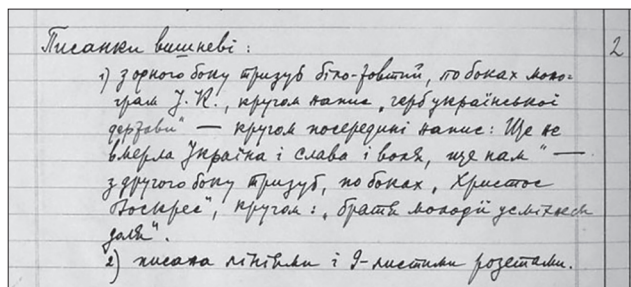 Писанки вишневі : 2
1) з одного боку тризуб біло-жовтий, по боках моно=
грам У. К., кругом напис „герб української
держави" — кругом посередині напис: Ще не
вмерла Україна і слава і воля, ще нам " —
з другого боку тризуб, по боках „Христос
Воскрес", кругом : „браття молодії усміхнеться
доля".
2) писана лініями і 9-листими розетами.